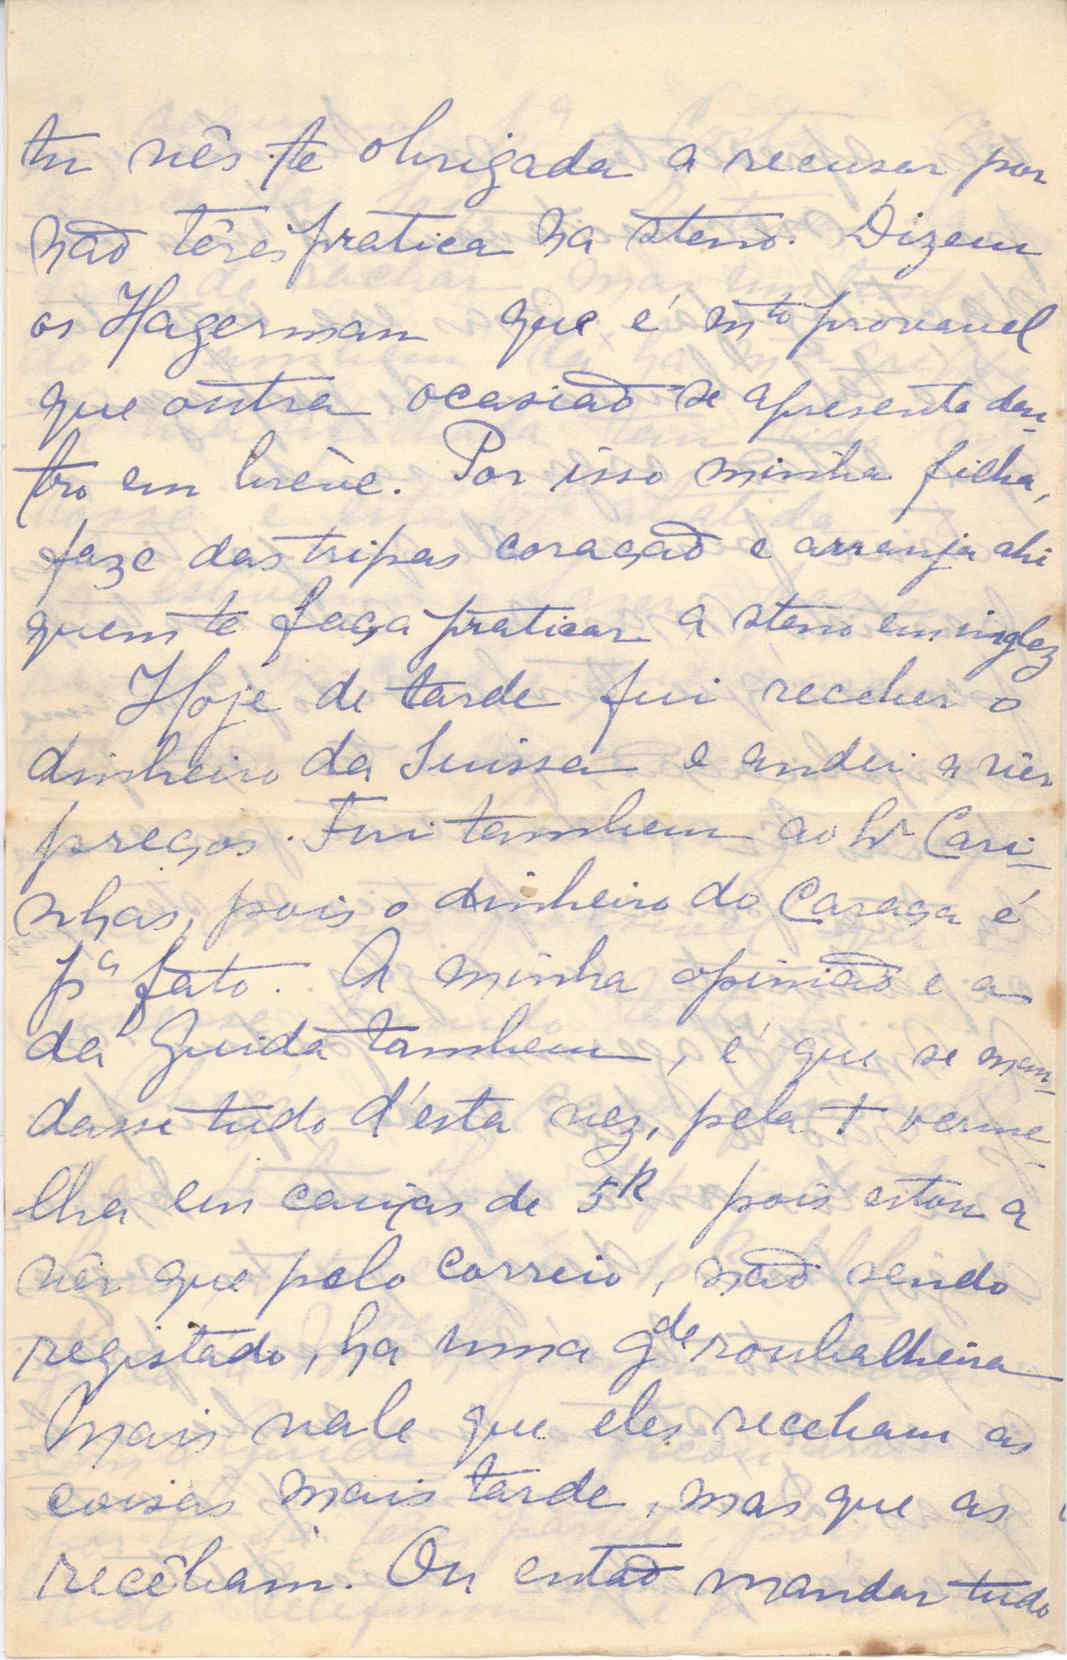 tu vês-te obrigada a recusar por
não têres pratica na steno. Dizem
os Hagerman que é mto provavel
que outra ocasião se apresente den-
tro em brêve. Por isso minha filha,
faze das tripas coração e arranja ahi
quem te faça praticar a steno em inglez
Hoje de tarde fui receber o
dinheiro da Suissa e andei a vêr
preços. Fui tambem ao Sr Cari-
nhas, pois o dinheiro do Caraça é
pa fato. A minha opinião e a
da Guida tambem, é que se man-
dasse tudo d'esta vez, pela + verme-
lha em caixas de 5K pois estou a
vêr que pelo correio, não sendo
registado, ha uma gde roubalheira
Mais vale que eles recebam as
coisas mais tarde, mas que as
recêbam. Ou então mandar tudo